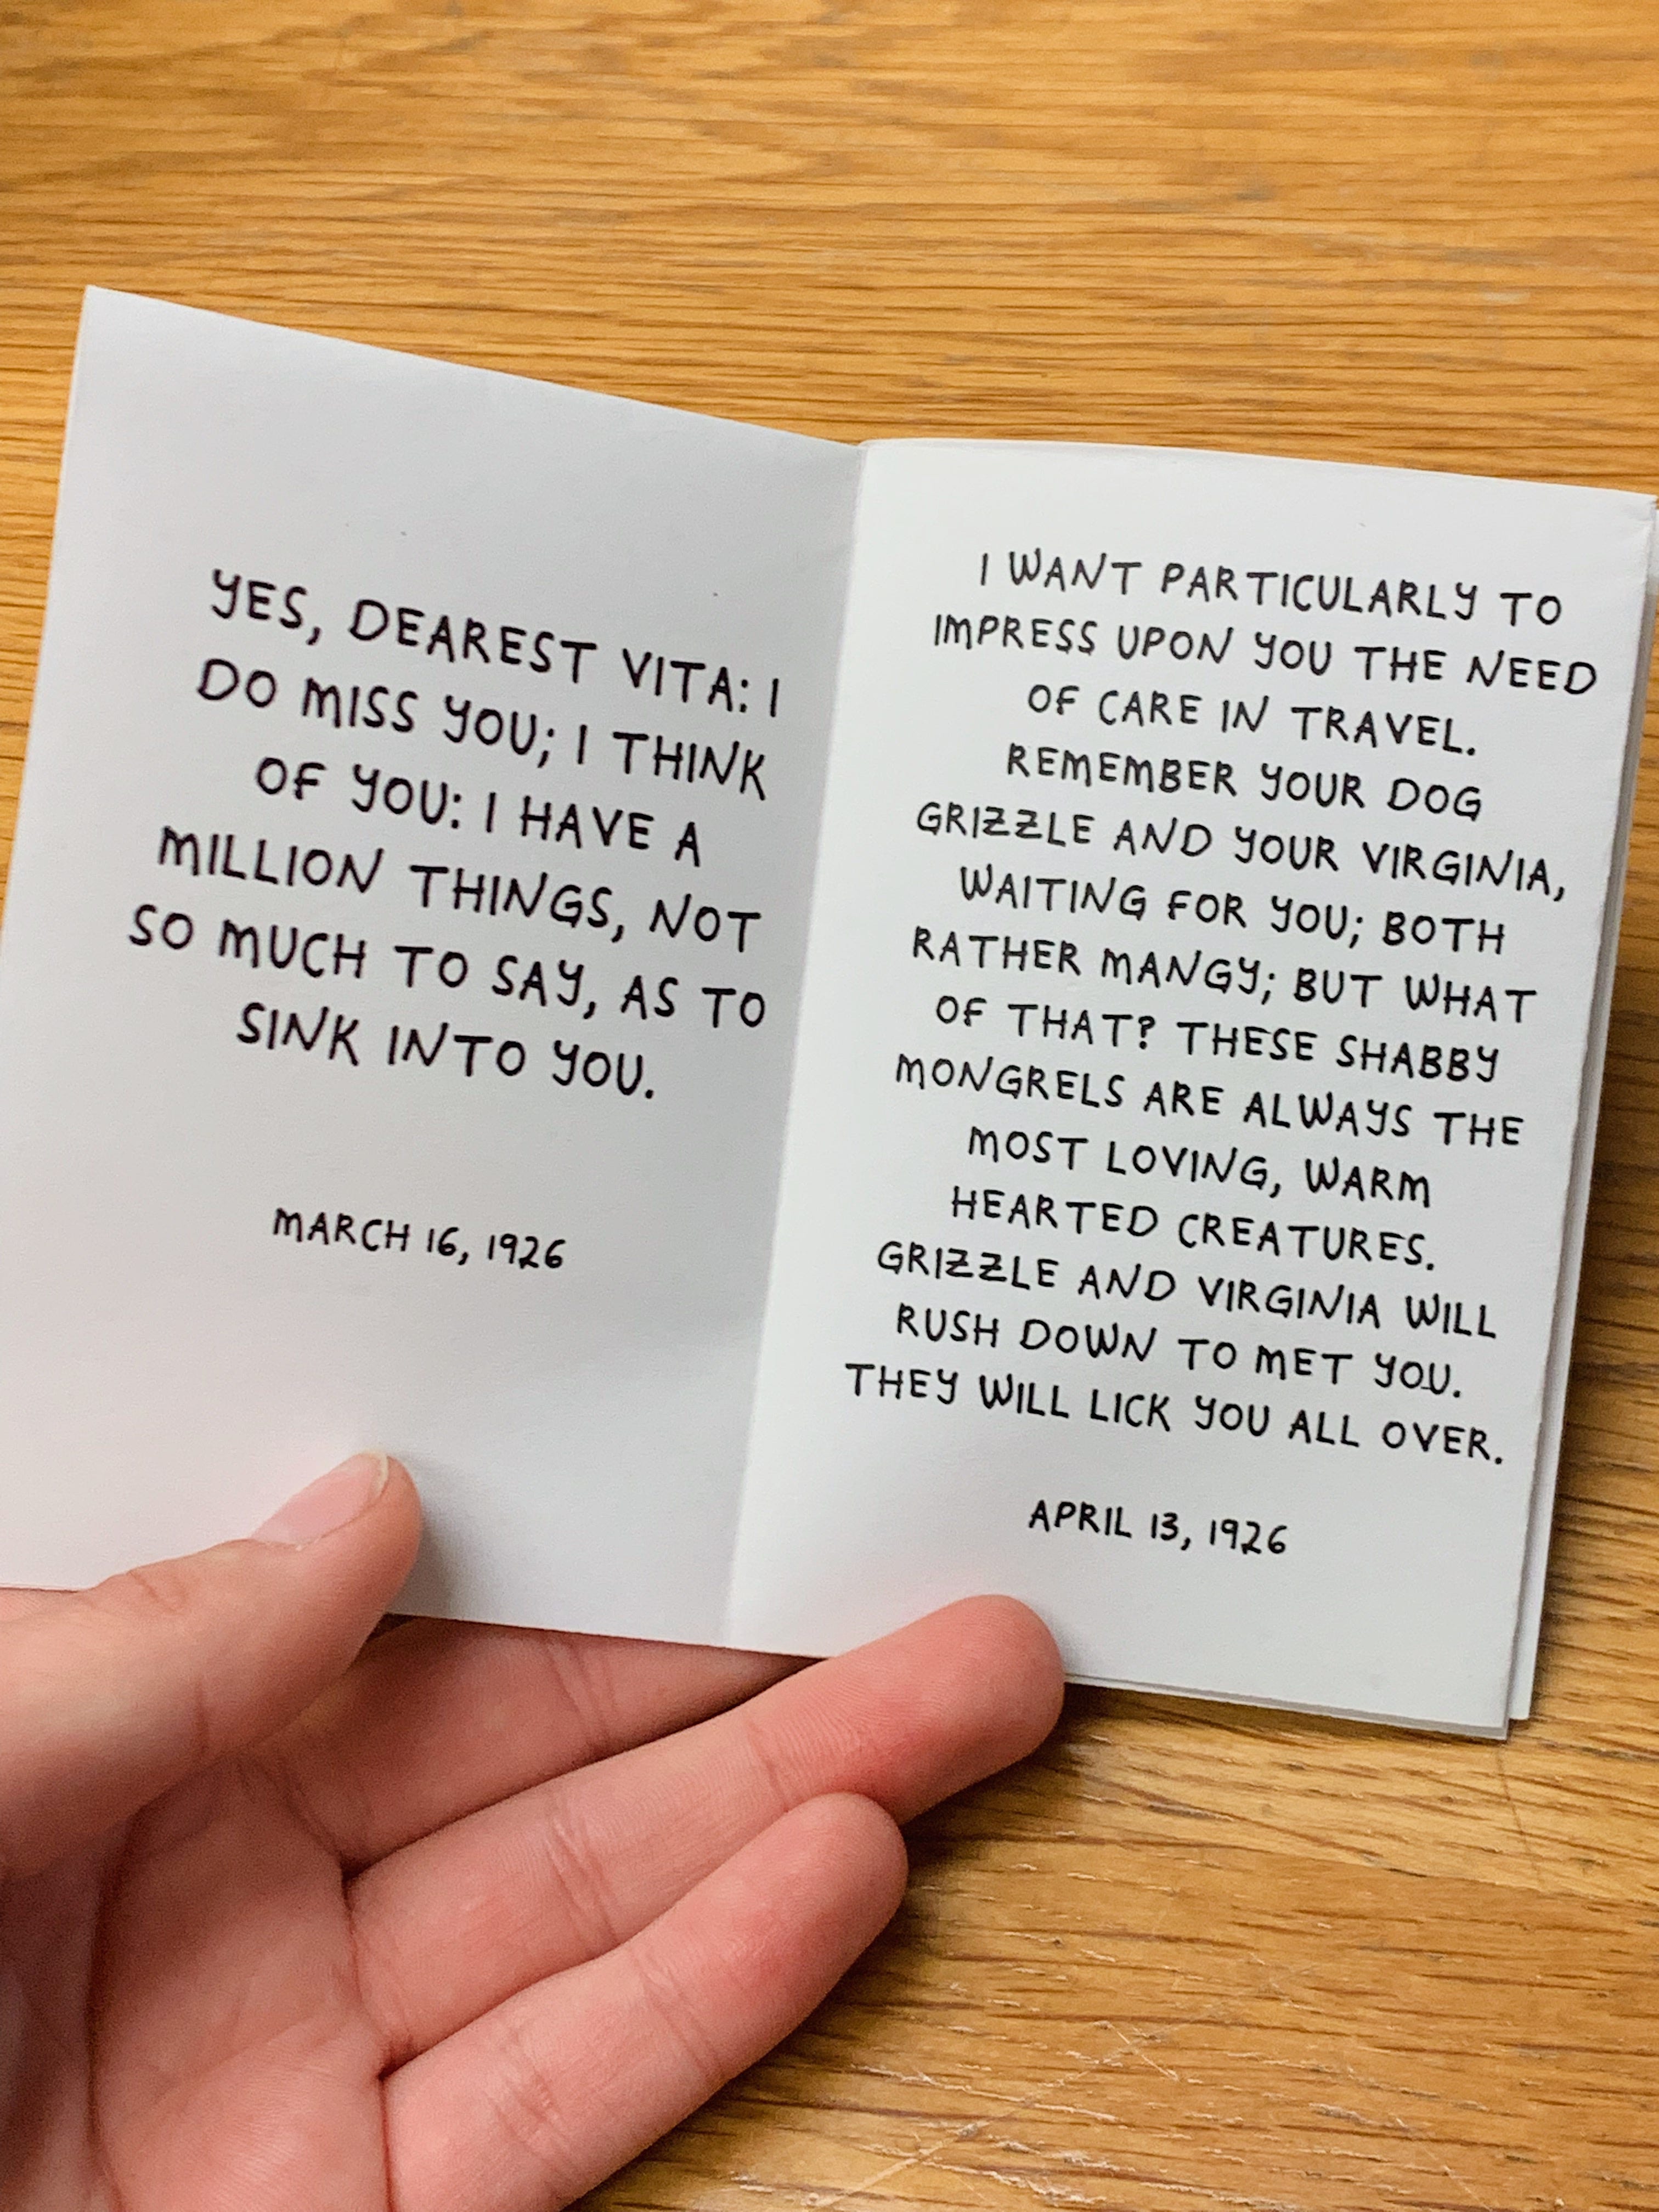 YES, DEAREST VITA: I
DO MISS YOU; I THINK
OF YOU: I HAVE A
MILLION THINGS, NOT
SO MUCH TO SAY, AS TO
SINK INTO YOU.
MARCH 16, 1926
I WANT PARTICULARLY TO
IMPRESS UPON YOU THE NEED
OF CARE IN TRAVEL.
REMEMBER YOUR DOG
GRIZZLE AND YOUR VIRGINIA,
WAITING FOR YOU; BOTH
RATHER MANGY; BUT WHAT
OF THAT? THESE SHABBY
MONGRELS ARE ALWAYS THE
MOST LOVING, WARM
HEARTED CREATURES.
GRIZZLE AND VIRGINIA WILL
RUSH DOWN TO MET YOU.
THEY WILL LICK YOU ALL OVER.
APRIL 13, 1926